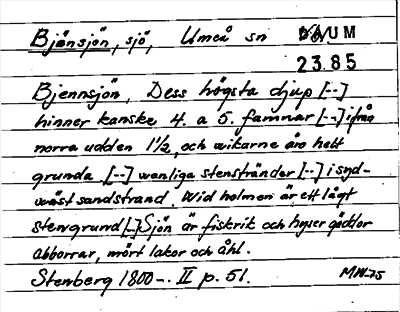 Bjänsjön, sjö, Umeå sn DAUM
23.85
Bjennsjön, Dess högsta djup [--]
hinner kanske 4. a 5. famnar [--] ifrån
norra udden 1 1/2, och wikarne äro helt
grunda [--] wanliga stenstränder [--] i syd-
wäst sandstrand. Wid holmen är ett lågt
stengrund [--] Sjön är fiskrik och hyser gäddor
abborrar, mört lakor och åhl.
Stenberg 1800-. II p. 51. MW-75